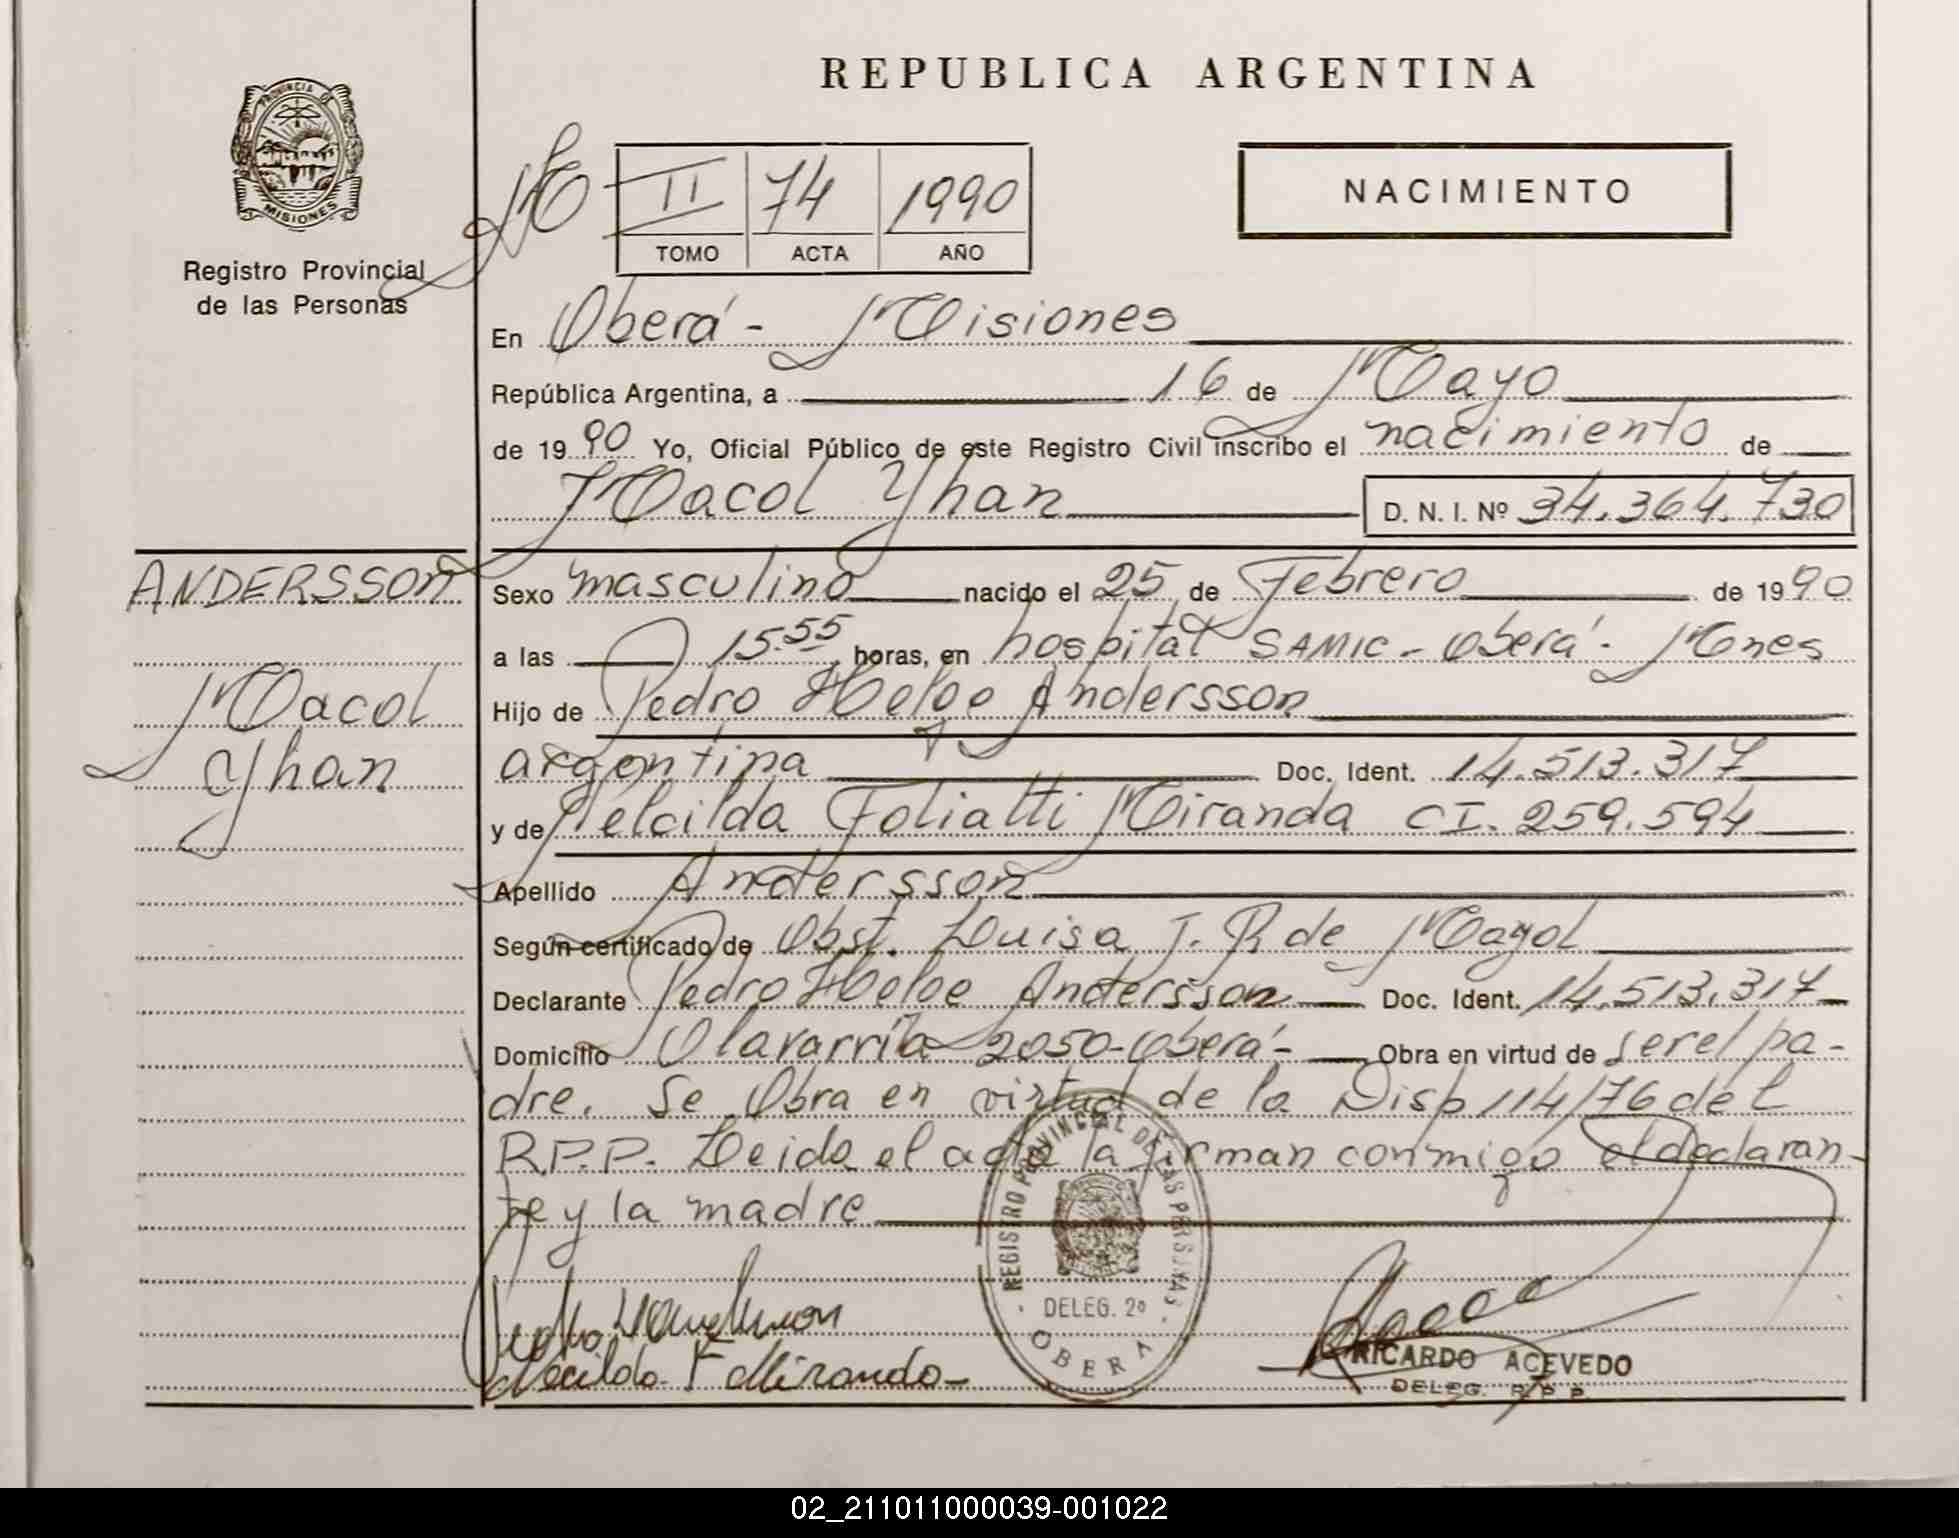 REPUBLICA ARGENTINA
PROVINCIA DE
MISIONES
Registro Provincial
de las Personas
II 74 1990
TOMO ACTA AÑO
NACIMIENTO
En Oberá - Misiones
República Argentina, a 16 de Mayo
de 1990 Yo, Oficial Público de este Registro Civil inscribo el nacimiento de
Macol Yhan D. N. I. Nº 34.364.730
ANDERSSON
Macol
Yhan
Sexo masculino nacido el 25 de Febrero de 1990
a las 15.55 horas, en hospital SAMIC - Oberá - Mnes
Hijo de Pedro Helge Andersson
argentina Doc. Ident. 14.513.317
y de Nelcilda Foliatti Miranda CI. 259.594
Apellido Andersson
Según certificado de Obst. Luisa J. R de Mayol
Declarante Pedro Helge Andersson Doc. Ident. 14.513.317
Domicilio Olavarría 2050-Oberá- Obra en virtud de ser el pa-
dre. Se Obra en virtud de la Disp 114/76 del
R.P.P. Leida el acta la firman conmigo el declaran-
te y la madre
REGISTRO PROVINCIAL DE LAS PERSONAS
DELEG. 2º
OBERA
Nelcilda F Miranda
RICARDO ACEVEDO
DELEG. R. P. P.
02_211011000039-001022